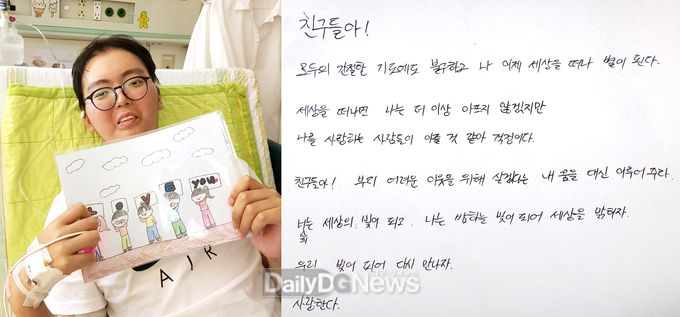 YOU
AIR
친구들아!
모두의 간절한 기도에도 불구하고 나 이제 세상을 떠나 별이 된다.
세상을 떠나면 나는 더 이상 아프지 않겠지만
나를 사랑하는 사람들이 아플 것 같아 걱정이다.
친구들아! 부디 어려운 이웃을 위해 살겠다는 내 꿈을 대신 이루어 주라.
너희는 세상의 빛이 되고 나는 밤하늘 빛이 되어 세상을 밝히자.
우리 빛이 되어 다시 만나자.
사랑한다.
DailyDGNews